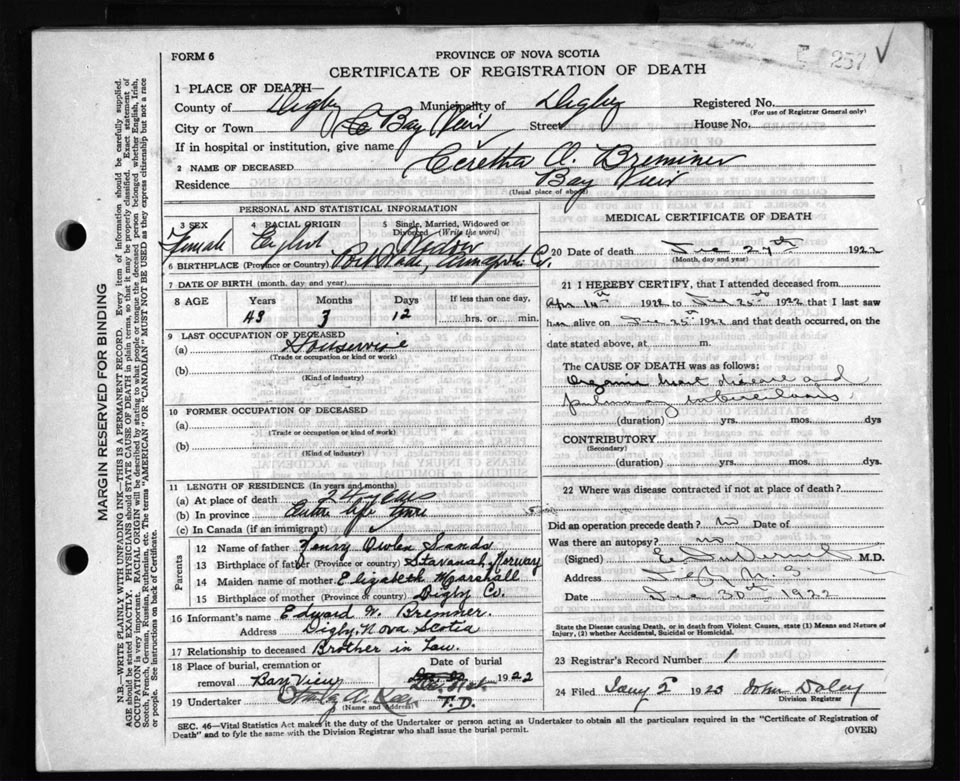 257 ✓
FORM 6
PROVINCE OF NOVA SCOTIA
CERTIFICATE OF REGISTRATION OF DEATH
1 PLACE OF DEATH—
County of Digby Municipality of Digby Registered No.
(For use of Registrar General only)
City or Town Bay View Street House No.
If in hospital or institution, give name
2 NAME OF DECEASED Ceretha A. Bremner
Residence Bay View
(Usual place of abode)
PERSONAL AND STATISTICAL INFORMATION
3 SEX 4 RACIAL ORIGIN 5 Single, Married, Widowed or Divorced (Write the word)
Female English Widow
6 BIRTHPLACE (Province or Country) Port Wade, Annapolis Co.
7 DATE OF BIRTH (month, day and year)
8 AGE Years Months Days If less than one day,
43 3 12 hrs. or min.
9 LAST OCCUPATION OF DECEASED
(a) Housewife
(Trade or occupation or kind or work)
(b)
(Kind of industry)
10 FORMER OCCUPATION OF DECEASED
(a)
(Trade or occupation or kind of work)
(b)
(Kind of industry)
11 LENGTH OF RESIDENCE (In years and months)
(a) At place of death 24 years
(b) In province Entire life time
(c) In Canada (if an immigrant)
Parents
12 Name of father Henry Owlen Sands
13 Birthplace of father (Province or country) Stavanah, Norway
14 Maiden name of mother Elizabeth Marshall
15 Birthplace of mother (Province or country) Digby Co.
16 Informant's name Edward W. Bremner.
Address Digby, Nova Scotia
17 Relationship to deceased Brother in Law.
18 Place of burial, cremation or removal Bay View
Date of burial 1922
19 Undertaker
(Name and Address)
MEDICAL CERTIFICATE OF DEATH
20 Date of death Dec 27th 1922
(Month, day and year)
21 I HEREBY CERTIFY, that I attended deceased from
Apr 14th 1922 to Dec 25th 1922 that I last saw
her alive on Dec 25th 1922 and that death occurred, on the
date stated above, at m.
The CAUSE OF DEATH was as follows:
Organic heart disease and
pulmonary tuberculosis
(duration) yrs. mos. dys
CONTRIBUTORY
(Secondary)
(duration) yrs. mos. dys.
22 Where was disease contracted if not at place of death?
Did an operation precede death? no Date of
Was there an autopsy? no
(Signed) M.D.
Address
Date Dec 30th 1922
State the Disease causing Death, or in death from Violent, Causes, state (1) Means and Nature of
Injury, (2) whether Accidental, Suicidal or Homicidal.
23 Registrar's Record Number 1
24 Filed Jany 2 1923 John Doley
Division Registrar
SEC. 46—Vital Statistics Act makes it the duty of the Undertaker or person acting as Undertaker to obtain all the particulars required in the "Certificate of Registration of
Death" and to fyle the same with the Division Registrar who shall issue the burial permit.
(OVER)
MARGIN RESERVED FOR BINDING
N.B.—WRITE PLAINLY WITH UNFADING INK—THIS IS A PERMANENT RECORD. Every item of information should be carefully supplied.
AGE should be stated EXACTLY. PHYSICIANS should STATE CAUSE OF DEATH in plain terms, so that it may be properly classified. Exact statement of
OCCUPATION is very important. RACIAL ORIGIN will be described by stating to what people or tongue the deceased person belonged whether English, Irish,
Scotch, French, German, Russian, Ruthenian, etc. The terms "AMERICAN" or "CANADIAN" MUST NOT BE USED as they express citizenship but not a race
or people. See instructions on back of Certificate.